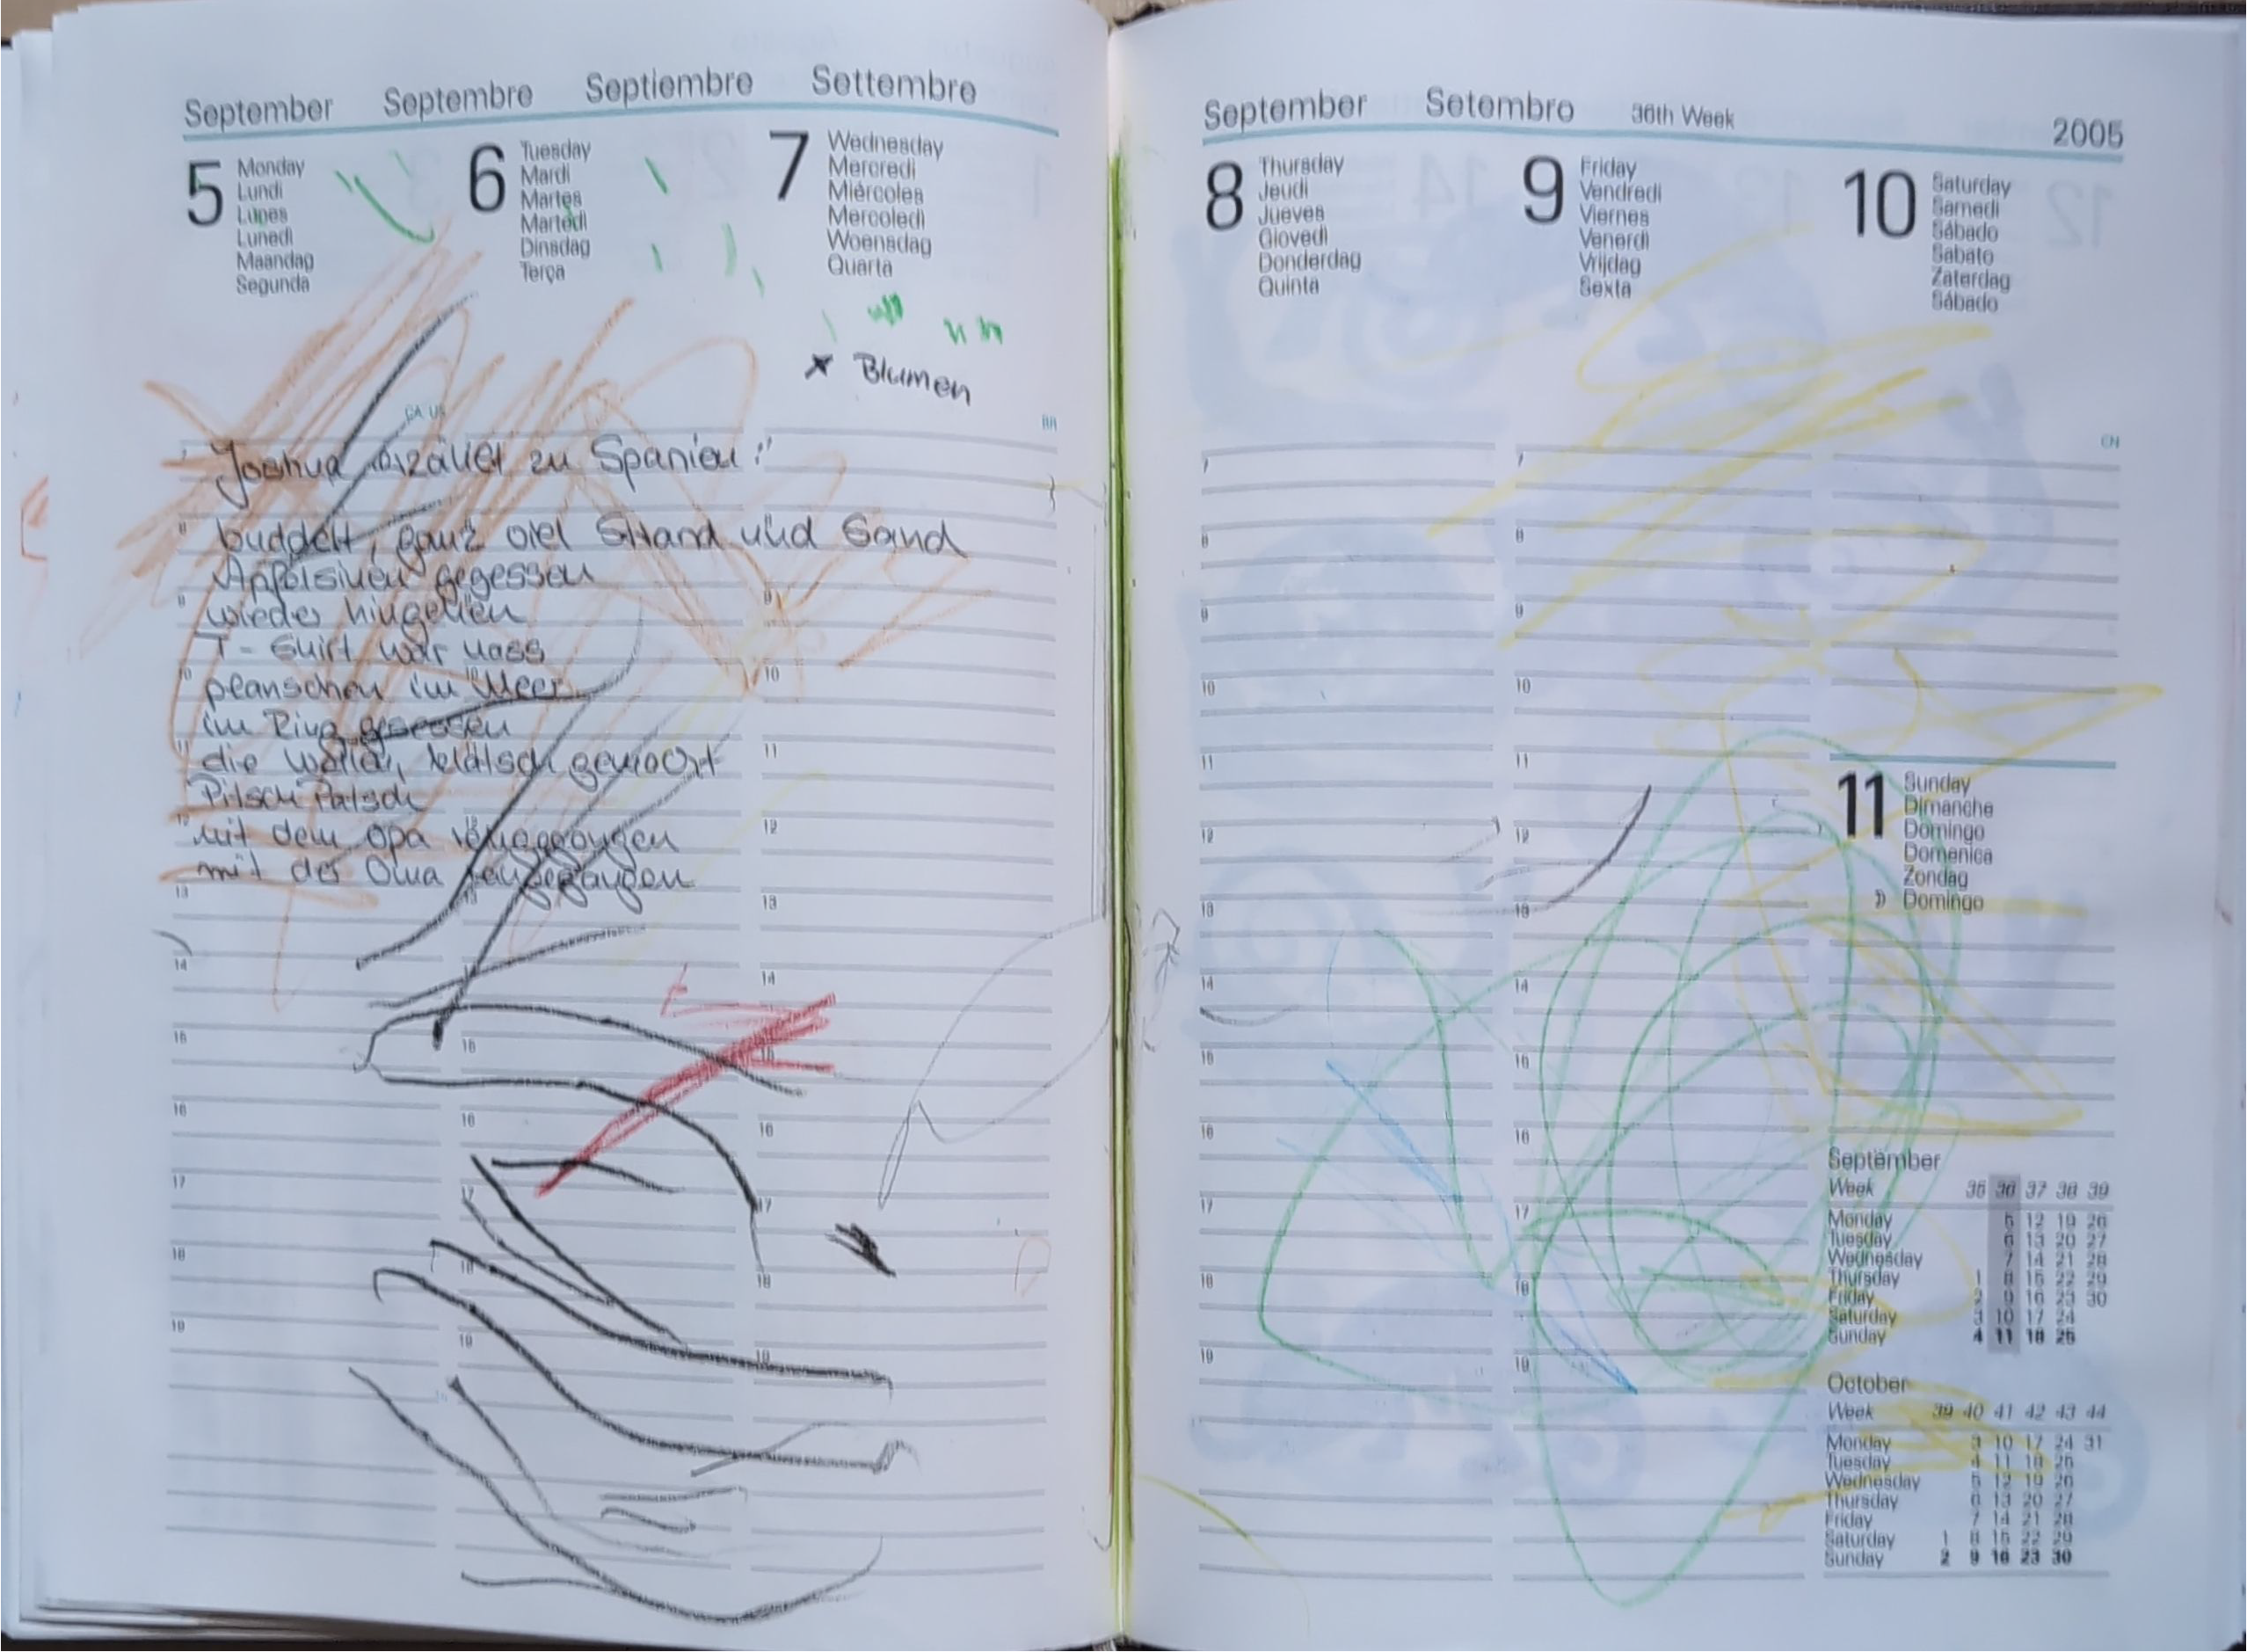 September Septembre Septiembre Settembre
5 Monday
Lundi
Lunes
Lunedi
Maandag
Segunda
6 Tuesday
Mardi
Martes
Martedi
Dinsdag
Terça
7 Wednesday
Mercredi
Miércoles
Mercoledi
Woensdag
Quarta
x Blumen
CA, US
Joshua erzählt zu Spanien:"
buddelt, ganz viel Strand und Sand
Apfelsinen gegessen
wieder hingehen
T-Shirt war nass
planschen im Meer
im Ring gesessen
die Wellen, klatsch gemacht
Pitsch Patsch
mit dem Opa
mit der Oma
September Setembro 36th Week 2005
8 Thursday
Jeudi
Jueves
Giovedi
Donderdag
Quinta
9 Friday
Vendredi
Viernes
Venerdi
Vrijdag
Sexta
10 Saturday
Samedi
Sábado
Sabato
Zaterdag
Sábado
CN
7 7
8 8
9 9
10 10
11 11
12 12
13 13
14 14
15 15
16 16
17 17
18 18
19 19
11 Sunday
Dimanche
Domingo
Domenica
Zondag
Domingo
September
Week 35 36 37 38 39
Monday 5 12 19 26
Tuesday 6 13 20 27
Wednesday 7 14 21 28
Thursday 1 8 15 22 29
Friday 2 9 16 23 30
Saturday 3 10 17 24
Sunday 4 11 18 25
October
Week 39 40 41 42 43 44
Monday 3 10 17 24 31
Tuesday 4 11 18 25
Wednesday 5 12 19 26
Thursday 6 13 20 27
Friday 7 14 21 28
Saturday 1 8 15 22 29
Sunday 2 9 16 23 30